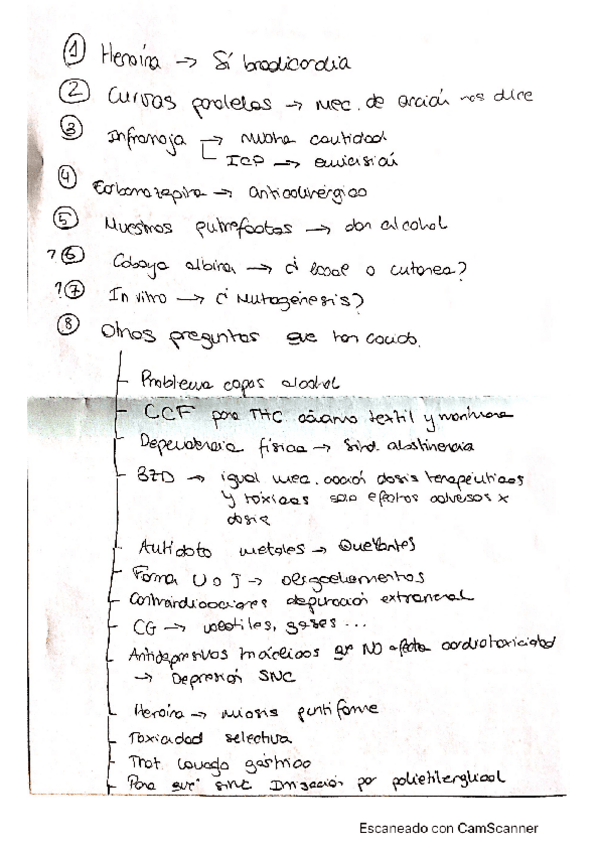 ① Heroína → Sí bradicardia
② Curvas paralelas → mec. de acción nos dice
③ Infrarroja → mucha cantidad
ICP → emisión
④ Carbamazepina → anticolinérgico
⑤ Muestras putrefactas → dan alcohol
?⑥ Cobaya albina → ¿ local o cutanea?
?⑦ In vitro → ¿ Mutagénesis?
⑧ Otras preguntas que han caido.
- Problema copas alcohol
- CCF para THC cáñamo textil y marihuana
- Dependencia física → Sind. abstinencia
- BZD → igual mec. acción dosis terapeúticas
y tóxicas solo efectos adversos x
dosis
- Antídoto metales → Quelantes
- Forma U o J → oligoelementos
- Contraindicaciones depuración extrarrenal
- CG → volátiles, gases ...
- Antidepresivos tricíclicos NO cardiotoxicidad
→ Depresión SNC
- Heroína → miosis puntiforme
- Toxicidad selectiva
- Trat. lavado gástrico
- Para que sirve Irrigación por polietilenglicol
Escaneado con CamScanner